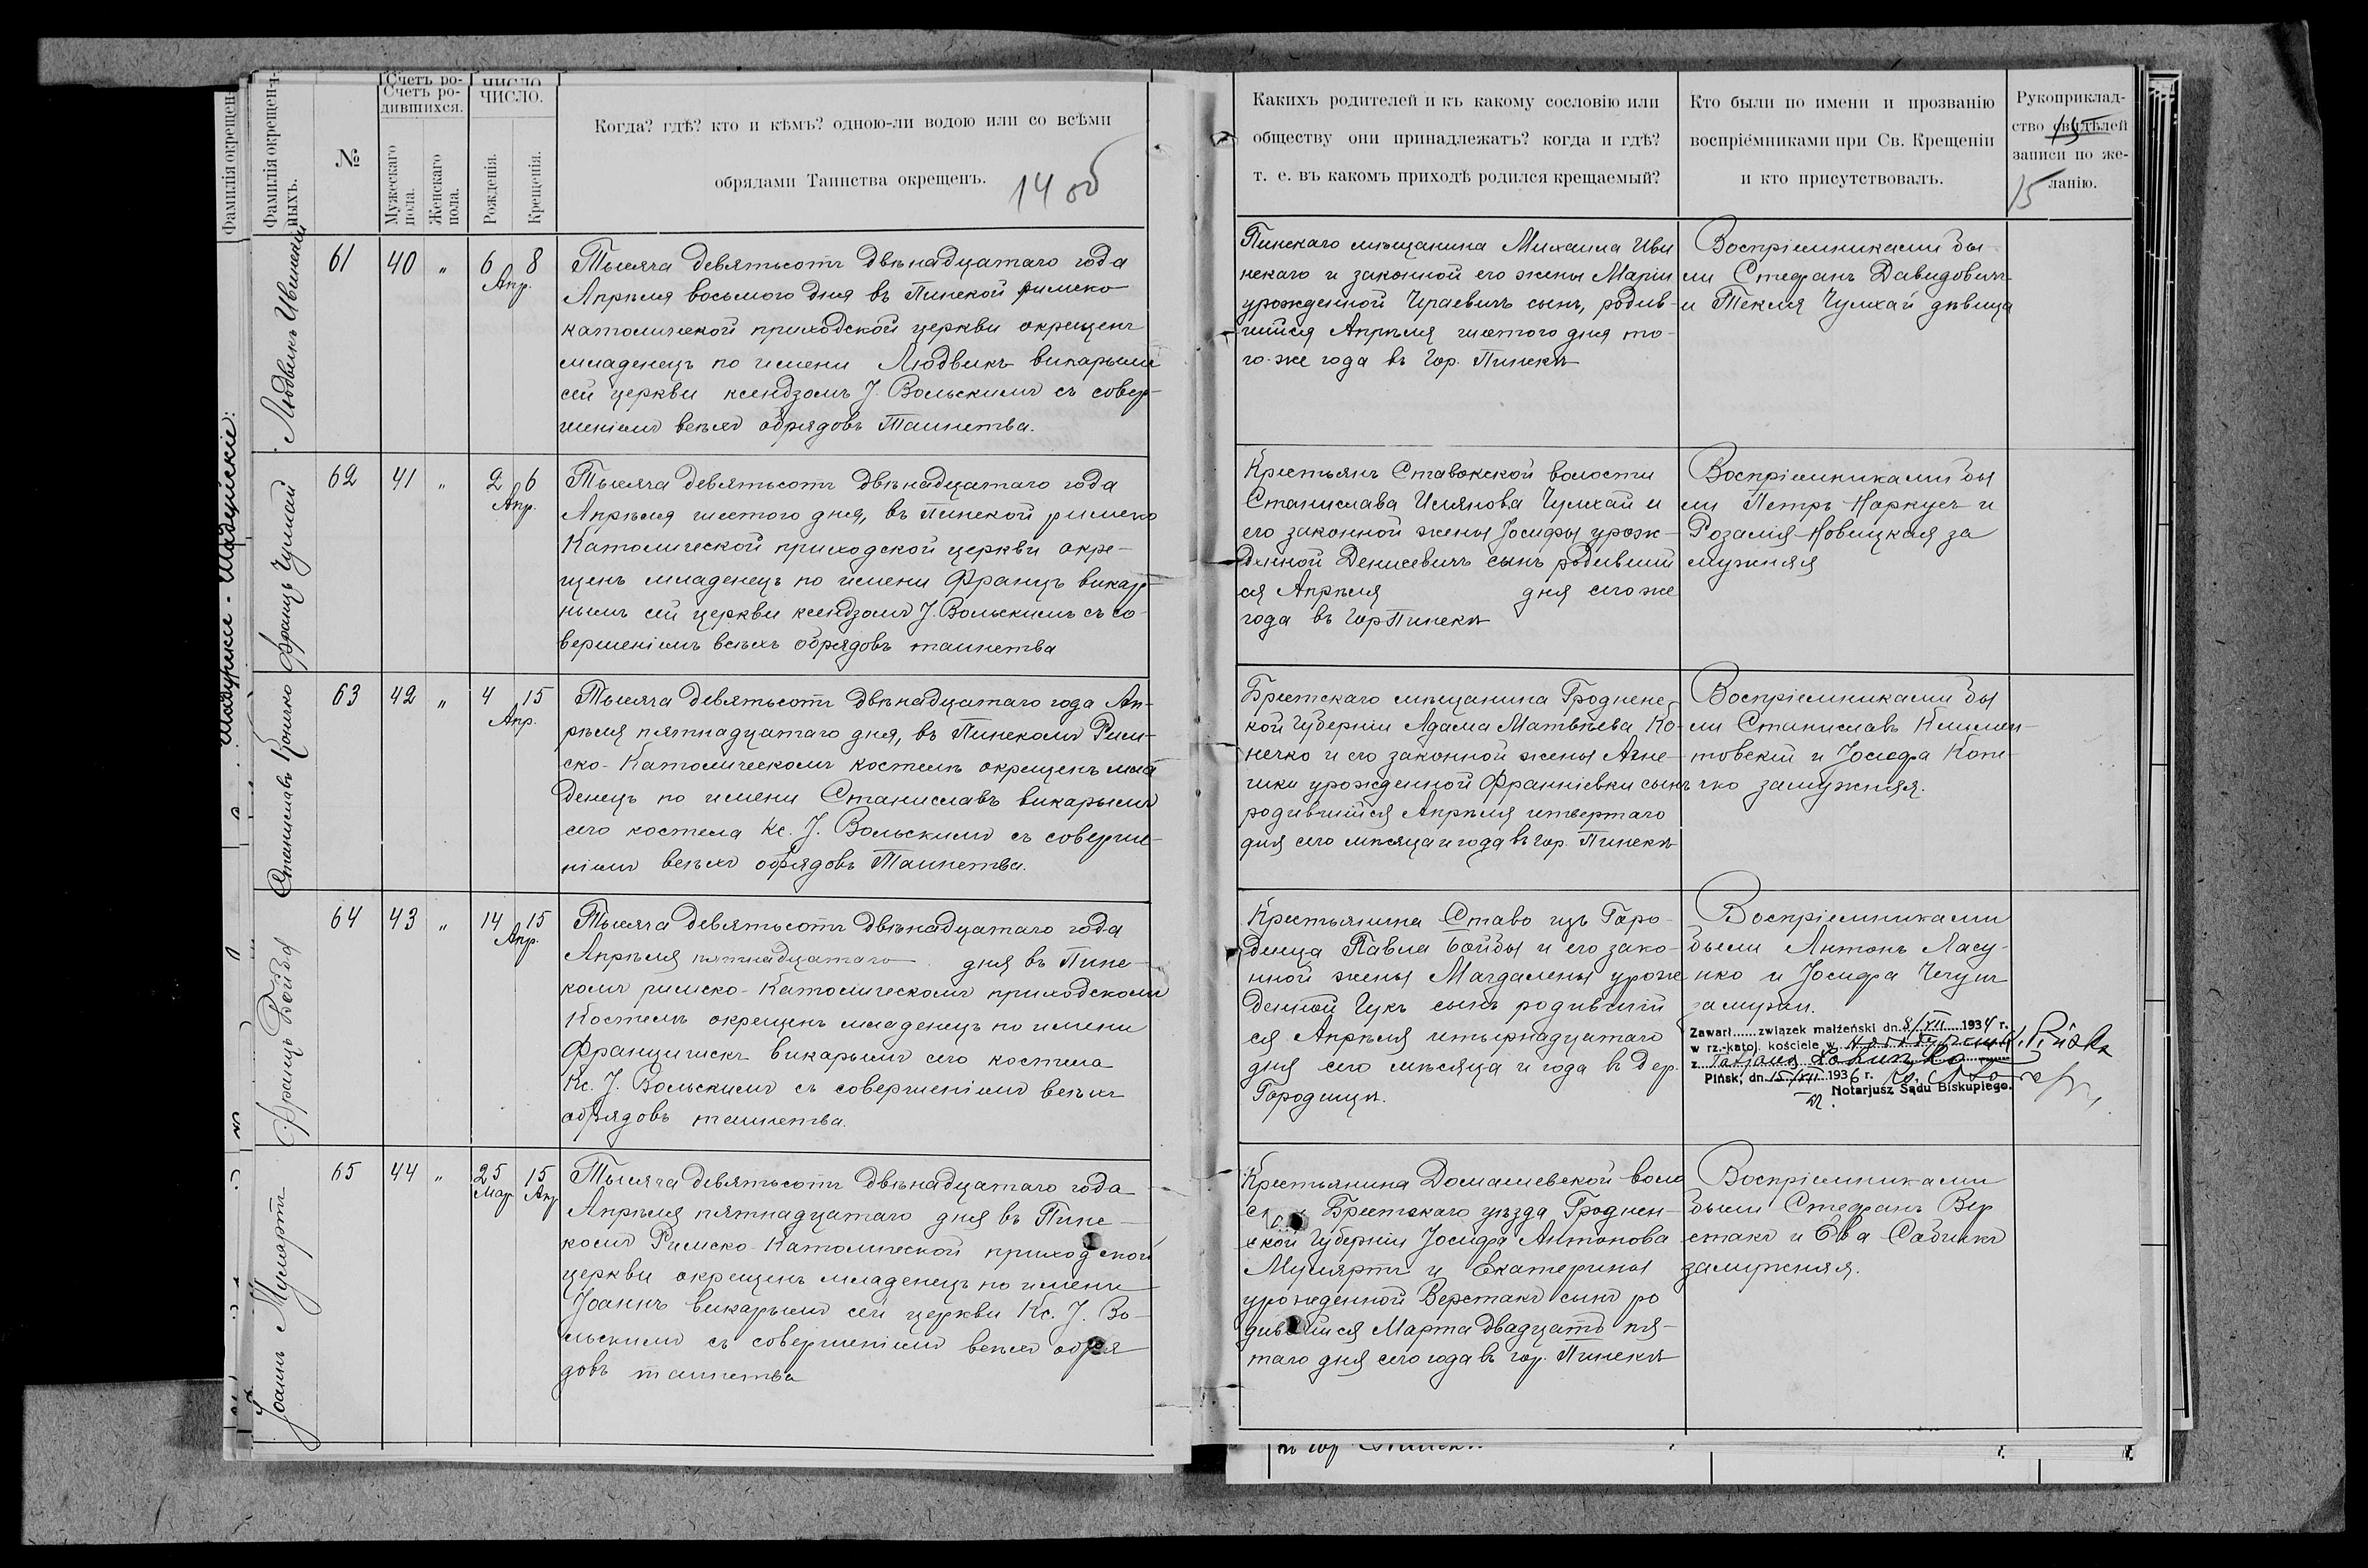 Фамилія окрещен-
ныхъ.
№
Счетъ ро-
дившихся.
Мужескаго
пола.
Женскаго
пола.
ЧИСЛО.
Рожденія.
Крещенія.
Когда? гдѣ? кто и кѣмъ? одною-ли водою или со всѣми
обрядами Таинства окрещенъ.
14 об
Людвикъ Ивинскій
61 40 " 6 8
Апр.
Тысяча девятьсотъ двѣнадцатаго года
Апрѣля восьмого дня въ Пинской римско
католической приходской церкви окрещенъ
младенецъ по имени Людвикъ викарымъ
сей церкви ксендзомъ І. Вольскимъ съ совер-
шеніемъ всѣхъ обрядовъ Таинства.
Францъ Чумхай
62 41 " 2 6
Апр.
Тысяча девятьсотъ двѣнадцатаго года
Апрѣля шестого дня, въ Пинской римско
Католической приходской церкви окре-
щенъ младенецъ по имени Францъ викар-
нымъ сей церкви ксендзомъ І. Вольскимъ съ со-
вершеніемъ всѣхъ обрядовъ таинства
Станиславъ Конечко
63 42 " 4 15
Апр.
Тысяча девятьсотъ двѣнадцатаго года Ап-
рѣля пятнадцатаго дня, въ Пинскомъ Рим-
ско-Католическомъ костелѣ окрещенъ мла
денецъ по имени Станиславъ викарымъ
сего костела Кс. І. Вольскимъ съ соверше-
ніемъ всѣхъ обрядовъ Таинства.
Францъ Бойба
64 43 " 14 15
Апр.
Тысяча девятьсотъ двѣнадцатаго года
Апрѣля пятнадцатаго дня въ Пинс-
комъ римско-Католическомъ приходскомъ
Костелѣ окрещенъ младенецъ по имени
Францишекъ викарымъ сего костела
Кс. І. Вольскимъ съ совершеніемъ всѣхъ
обрядовъ таинства.
Іоаннъ Мулартъ
65 44 " 25 15
Мар Апр
Тысяча девятьсотъ двѣнадцатаго года
Апрѣля пятнадцатаго дня въ Пинс-
комъ Римско-Католической приходской
церкви окрещенъ младенецъ по имени
Іоаннъ викарымъ сей церкви Кс. І. Во-
льскимъ съ совершеніемъ всѣхъ обря
довъ таинства
Какихъ родителей и къ какому сословію или
обществу они принадлежатъ? когда и гдѣ?
т. е. въ какомъ приходѣ родился крещаемый?
Кто были по имени и прозванію
воспріёмниками при Св. Крещеніи
и кто присутствовалъ.
Рукоприклад-
ство свидѣлей
записи по же-
ланію.
15
Пинскаго мѣщанина Михаила Иви
нскаго и законной его жены Маріи
урожденной сынъ, родив-
шійся Апрѣля шестого дня то-
го-же года въ гор. Пинскѣ
Воспріемниками бы
ли Стефанъ Давидовичъ
и Текля Чумхай дѣвица
Крестьянъ Ставокской волости
Станислава Чумхай и
его законной жены Іосифы урож-
денной Денисевичъ сынъ родивший
ся Апрѣля дня сего же
года въ гор Пинскѣ
Воспріемниками бы
ли Петръ Наркусъ и
Розалія Новицкая за
мужняя
Брестскаго мѣщанина Гродненс
кой губерніи Адама Матвѣева Ко-
нечко и его законной жены Агне-
шки урожденной сынъ
родившійся Апрѣля четвертаго
дня сего мѣсяца и года въ гор. Пинскѣ
Воспріемниками бы
ли Станиславъ Климон-
товскій и Іосифа Коне-
чко замужняя.
Крестьянина Ставо изъ Горо-
дища Павла Бойбы и его зако-
нной жены Магдалены урож
денной Чукъ сынъ родивший
ся Апрѣля четырнадцатаго
дня сего мѣсяца и года въ дер.
Городищѣ.
Воспріемниками
были Антонъ Ласу-
нко и Іосифа
замужн.
Zawarł......związek małżeński dn. 8/XII 1934 r.
w rz.-katol. kościele w Pińsk
z Tatjaną
Pińsk, dn. 15/XII 1936 r.
Notarjusz Sądu Biskupiego.
Крестьянина Домашевской воло
ск Брестскаго уѣзда Гроднен-
ской губерніи Іосифа Антонова
Мулярта и Екатерины
урожденной Верстакъ сынъ ро
дившійся Марта двадцать пя-
таго дня сего года въ гор. Пинскѣ
Воспріемниками
были Стефанъ Вер
стакъ и Ева
замужняя.